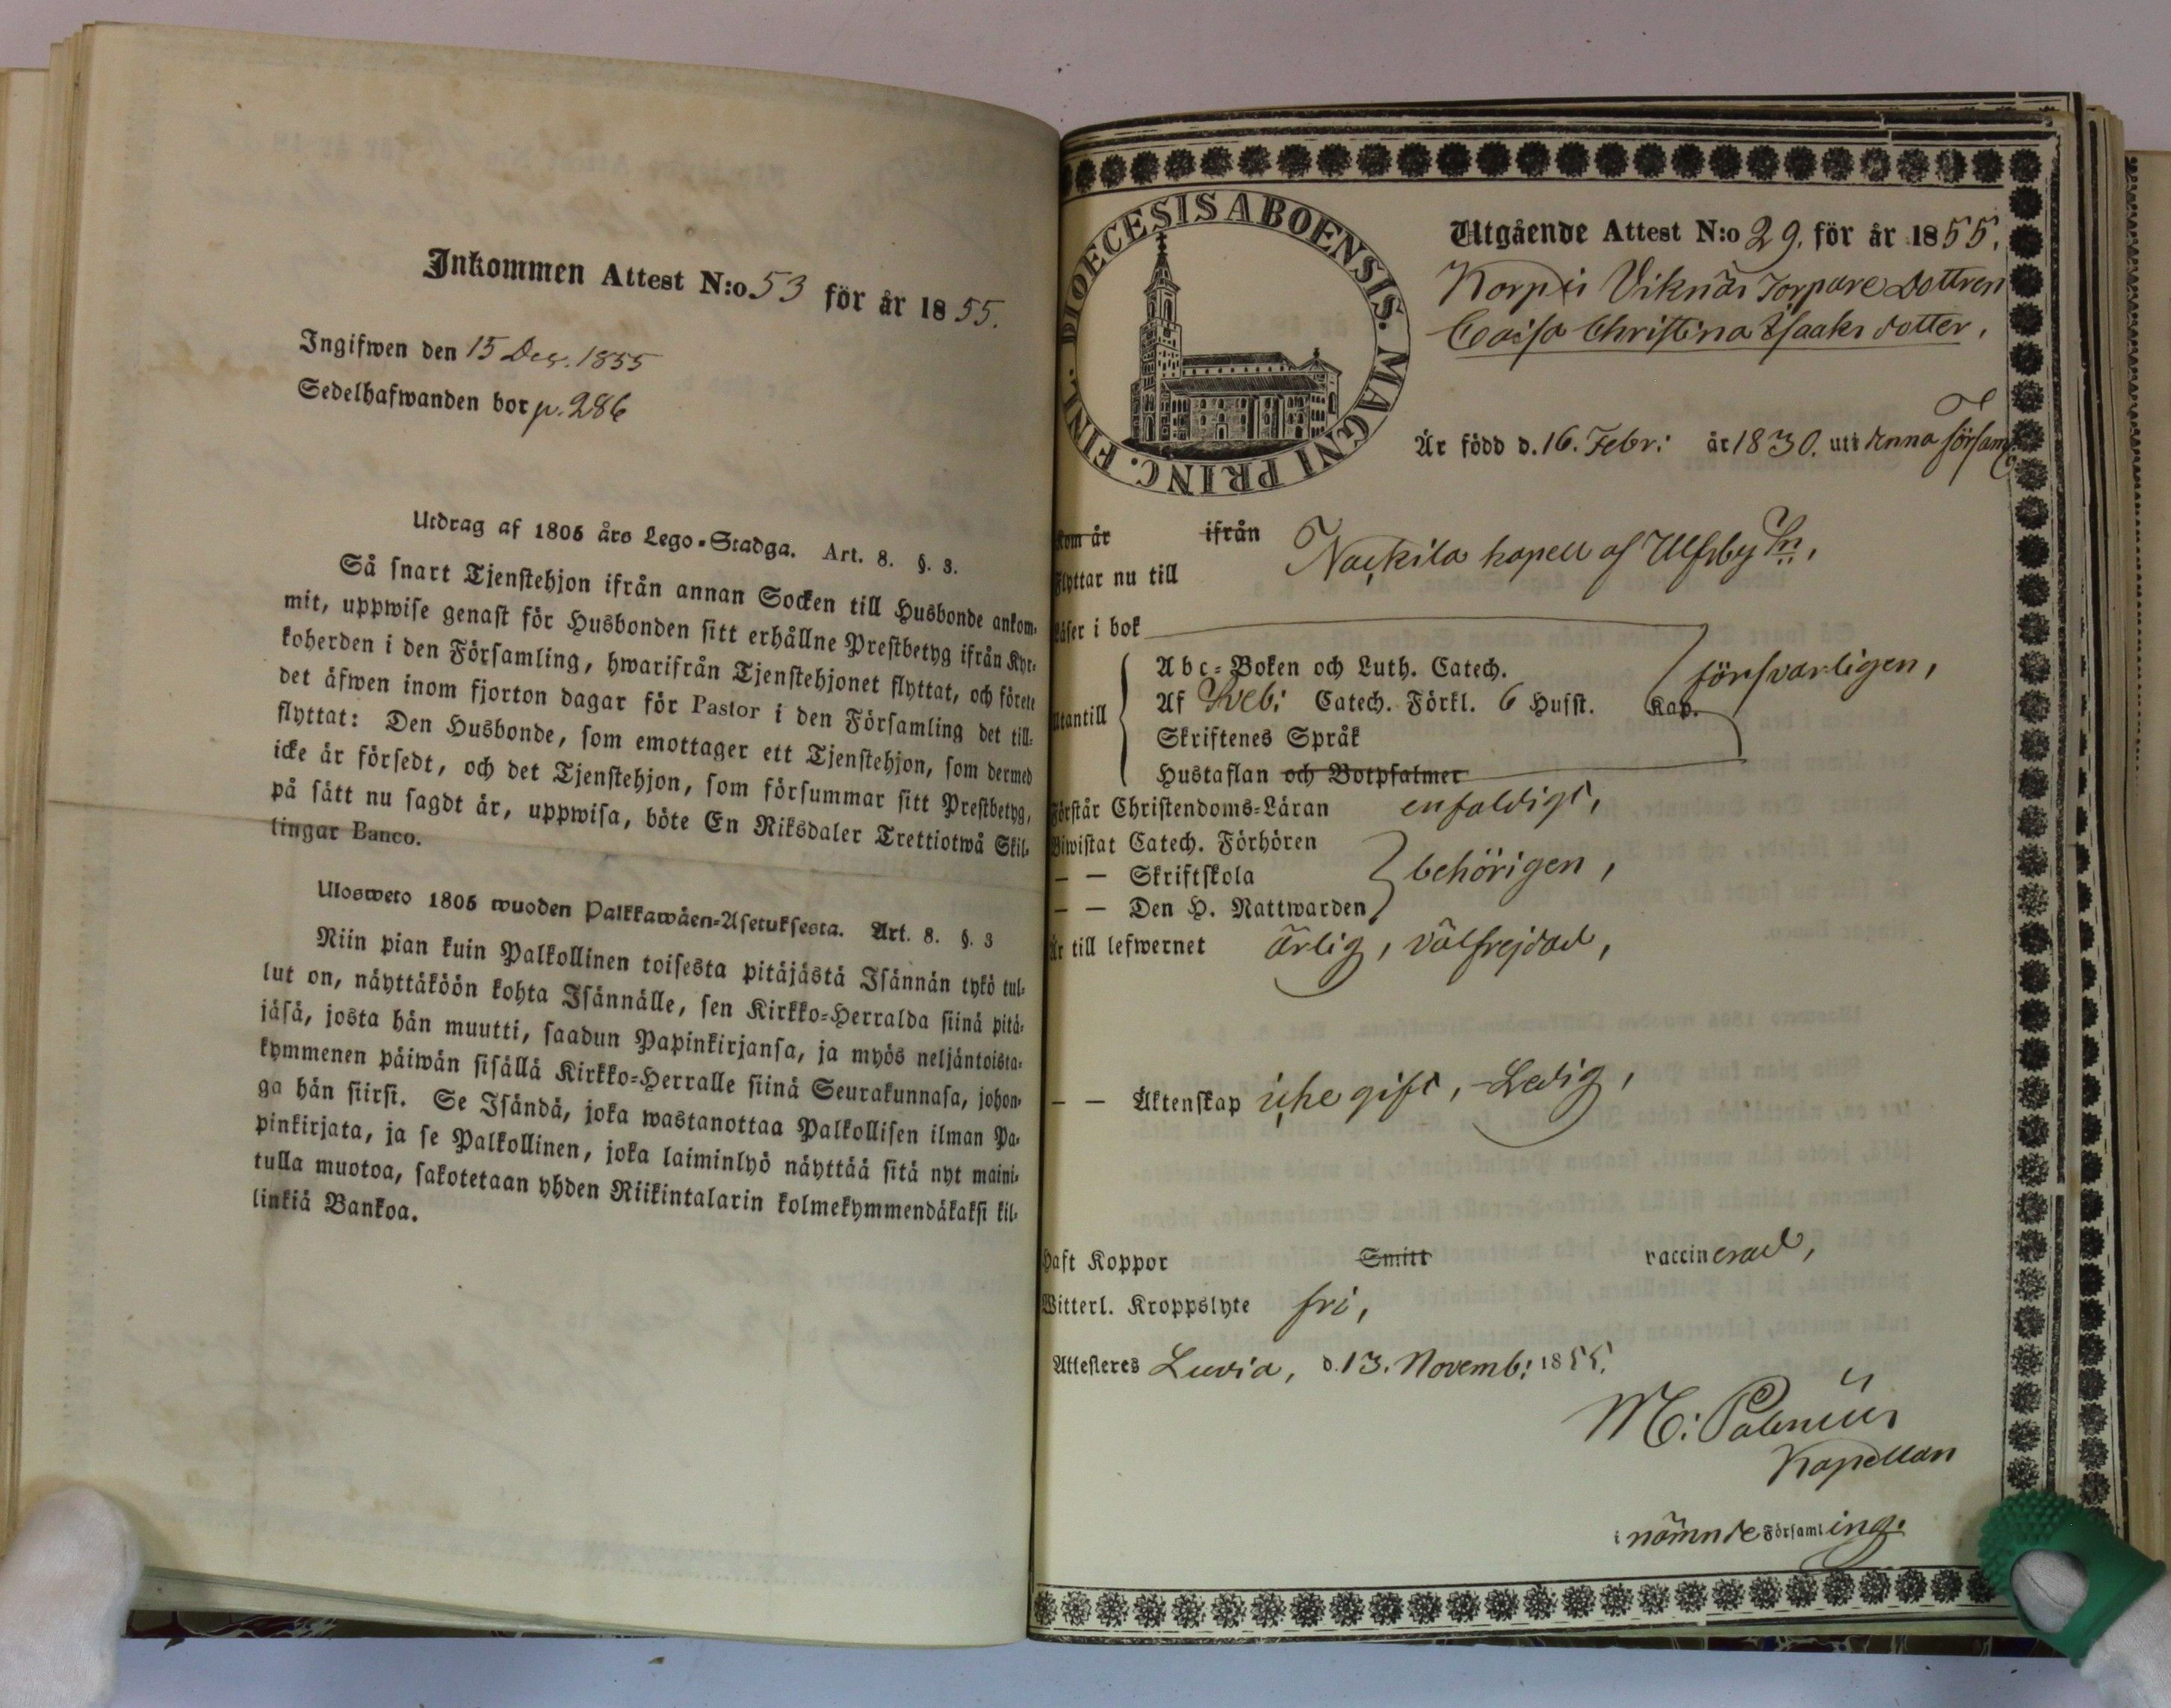 Inkommen Attest N:o 53 för år 1855.
Ingifwen den 15 Dec. 1855
Sedelhafwanden bor p. 286
Utdrag af 1805 års Lego-Stadga. Art. 8. §. 3.
Så snart Tjenstehjon ifrån annan Socken till Husbonde ankom-
mit, uppwise genast för Husbonden sitt erhållne Prestbetyg ifrån Kyr-
koherden i den Församling, hwarifrån Tjenstehjonet flyttat, och förete
det äfwen inom fjorton dagar för Pastor i den Församling det till-
flyttat: Den Husbonde, som emottager ett Tjenstehjon, som dermed
icke är försedt, och det Tjenstehjon, som försummar sitt Prestbetyg,
på sätt nu sagdt är, uppwisa, böte En Riksdaler Trettiotwå Skil-
lingar Banco.
Ulosweto 1805 wuoden Palkkawäen-Asetuksesta. Art. 8. §. 3
Niin pian kuin Palkollinen toisesta pitäjästä Isännän tykö tul-
lut on, näyttäköön kohta Isännälle, sen Kirkko-Herralda siinä pitä-
jäsä, josta hän muutti, saadun Papinkirjansa, ja myös neljäntoista-
kymmenen päiwän sisällä Kirkko-Herralle siinä Seurakunnasa, johon-
ga hän siirsi. Se Isändä, joka wastanottaa Palkollisen ilman Pa-
pinkirjata, ja se Palkollinen, joka laiminlyö näyttää sitä nyt maini-
tulla muotoa, sakotetaan yhden Riikintalarin kolmekymmendäkaksi kil-
linkiä Bankoa.
FINL. DIOECESIS ABOENSIS. MAGNI PRINC.
Utgående Attest N:o 29. för år 1855.
Korpi Viknäs Torpare Dottren
Caisa Christina Isaaks dotter,
Är född d. 16. Febr: år 1830. uti denna Församl.
Kom år ifrån
Flyttar nu till Nackila kapell af Ulfsby Sn,
Läser i bok
Abc-Boken och Luth. Catech.
försvarligen,
Utantill Af Sveb: Catech. Förkl. 6 Hufst. Kap.
Skriftenes Språk
Hustaflan och Botpsalmer
Förstår Christendoms-Läran enfaldigt,
Biwistat Catech. Förhören
— — Skriftskola behörigen,
— — Den H. Nattwarden
Är till lefwernet ärlig, välfrejdad,
— — Äktenskap icke gift, Ledig,
Haft Koppor Smitt vaccinerad,
Witterl. Kroppslyte fri,
Attesteres Luvia, d. 13. Novemb: 1855.
M: Palenius
Kapellan
i nämnde Församling.